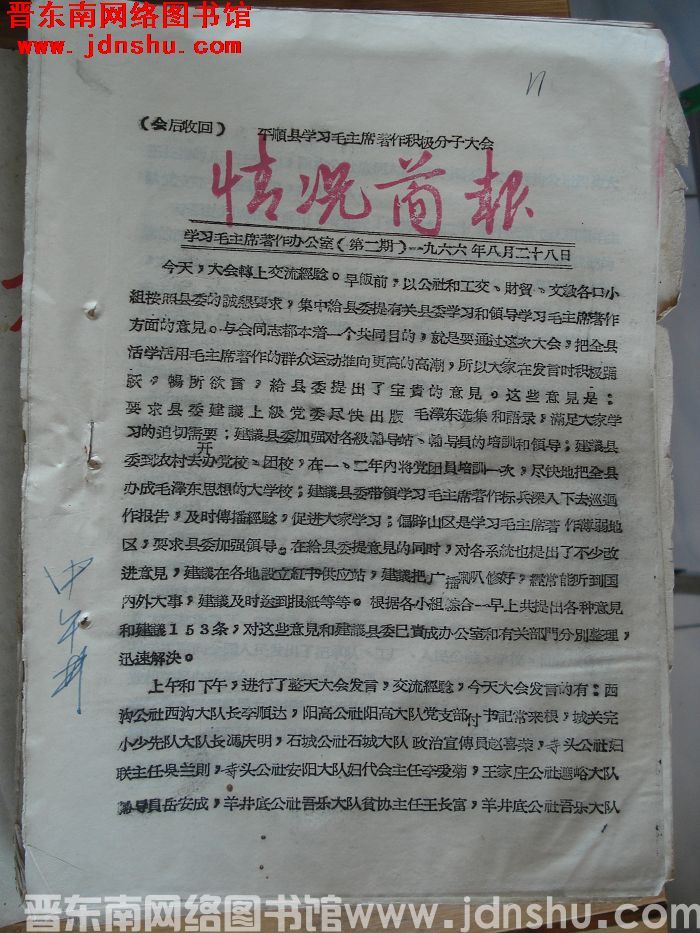 晋东南网络图书馆
www.jdnshu.com
17
（会后收回） 平順县学习毛主席著作积极分子大会
情况简报
学习毛主席著作办公室（第二期）一九六六年八月二十八日
今天，大会轉上交流經驗。早飯前，以公社和工交、財貿、文教各口小
組按照县委的誠恳要求，集中給县委提有关县委学习和領导学习毛主席著作
方面的意見。与会同志都本着一个共同目的，就是要通过这次大会，把全县
活学活用毛主席著作的群众运动推向更高的高潮，所以大家在发言时积极踊
跃，暢所欲言，給县委提出了宝貴的意見。这些意見是：
要求县委建議上級党委尽快出版毛泽东选集和語录，滿足大家学
习的迫切需要；建議县委加强对各級輔导站、輔导員的培訓和領导；建議县
委到农村去开办党校、团校，在一、二年內将党团員培訓一次，尽快地把全县
办成毛泽东思想的大学校；建議县委带領学习毛主席著作标兵深入下去巡迴
作报告，及时傳播經驗，促进大家学习；偏辟山区是学习毛主席著作薄弱地
区，要求县委加强領导。在給县委提意見的同时，对各系統也提出了不少改
进意見，建議在各地設立紅书供应站，建議把广播喇叭修好，經常能听到国
內外大事，建議及时送到报紙等等。根据各小組綜合一早上共提出各种意見
和建議153条，对这些意見和建議县委已責成办公室和有关部門分別整理，
迅速解决。
上午和下午，进行了整天大会发言，交流經驗，今天大会发言的有：西
沟公社西沟大队长李順达，阳高公社阳高大队党支部付书記常来根，城关完
小少先队大队长馮庆明，石城公社石城大队政治宣傳員赵喜荣，寺头公社妇
联主任吳兰則，寺头公社安阳大队妇代会主任李爱菊，王家庄公社遮峪大队
輔导員岳安成，羊井底公社吾乐大队貧协主任王长富，羊井底公社吾乐大队
晋东南网络图书馆 www.jdnshu.com